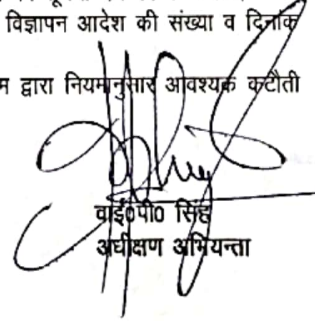 विज्ञापन आदेश की संख्या व दिनांक
म द्वारा नियमानुसार आवश्यक कटौती
वाई०पी० सिंह
अधीक्षण अभियन्ता